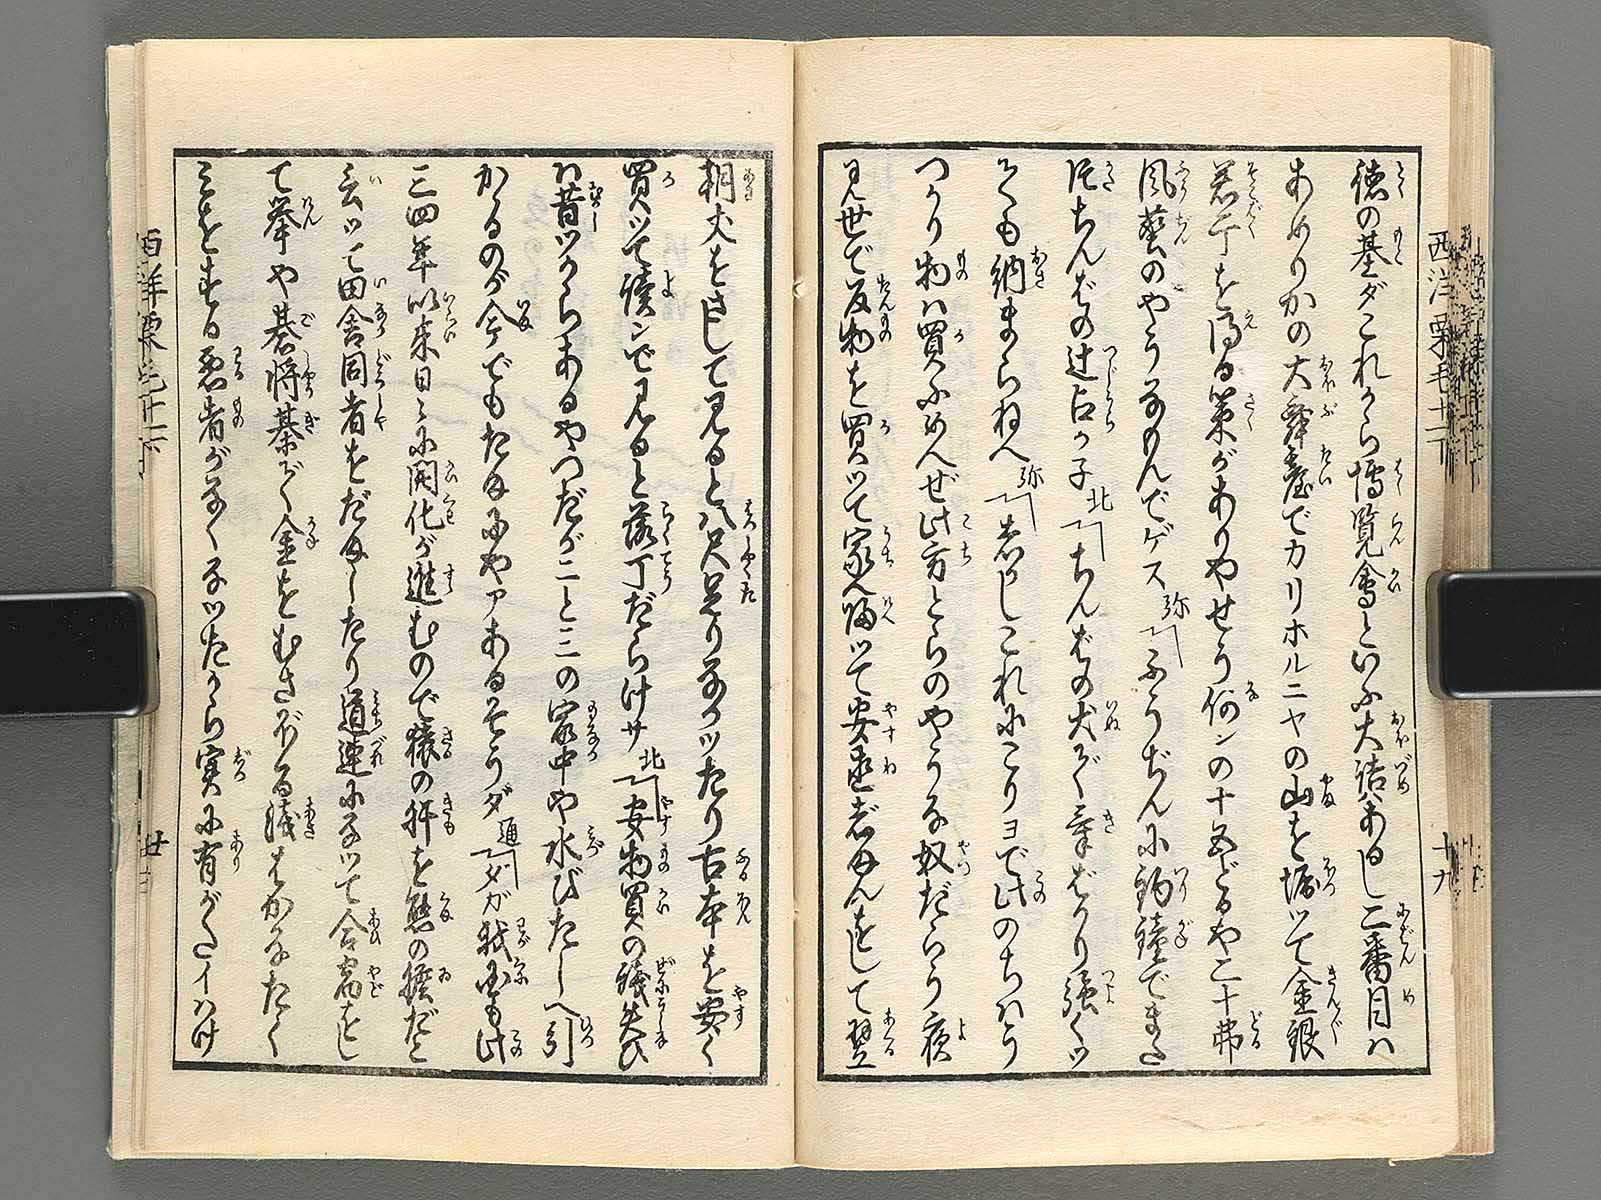 徳の基ダこれから博覧會といふ大詰があるし二番目ハ
あめりかの大舞臺でカリホルニヤの山を堀ツて金銀
若干を得る策がありやせう何ンの十五どるや二十弗
風藝のやうなもんでゲス 弥 ふうぢんに釣鐘でまた
片ちんばの辻占か子 北 ちんばの犬で気ばかり強くツ
ても納まらねへ 弥 しかしこれにこりヨで此のちハう
つかり物ハ買ふめへぜ此方とらのやうな奴だらう夜
見世で反物を買ツて家へ帰ツて安直だましをして翌
朝丈をさして見ると八尺足りなかツたり古本を安く
買ツて読ンで見ると落丁だらけサ 北 安物買の銭失ひ
ハ昔ツからあるやつだが二と三の家中や水びたしへ引
かゝるのが今でもたまにやアあるそうダ 通 ダガ我国も此
三四年以来日々に開化が進むので猿の肝を熊の膽だと
云ツて田舎同者をだましたり道連になツて合宿をし
て拳や碁将棊で金をむさぼる浅はかなたく
みをする悪者がなくなツたから実に有がたイハけ
西洋栗毛十一下
十九
西洋栗毛十一下
廿